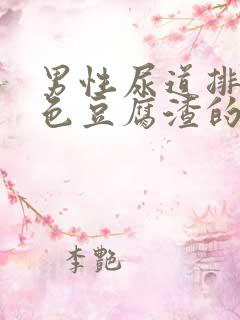 男性尿道排
色豆腐渣的
李艷